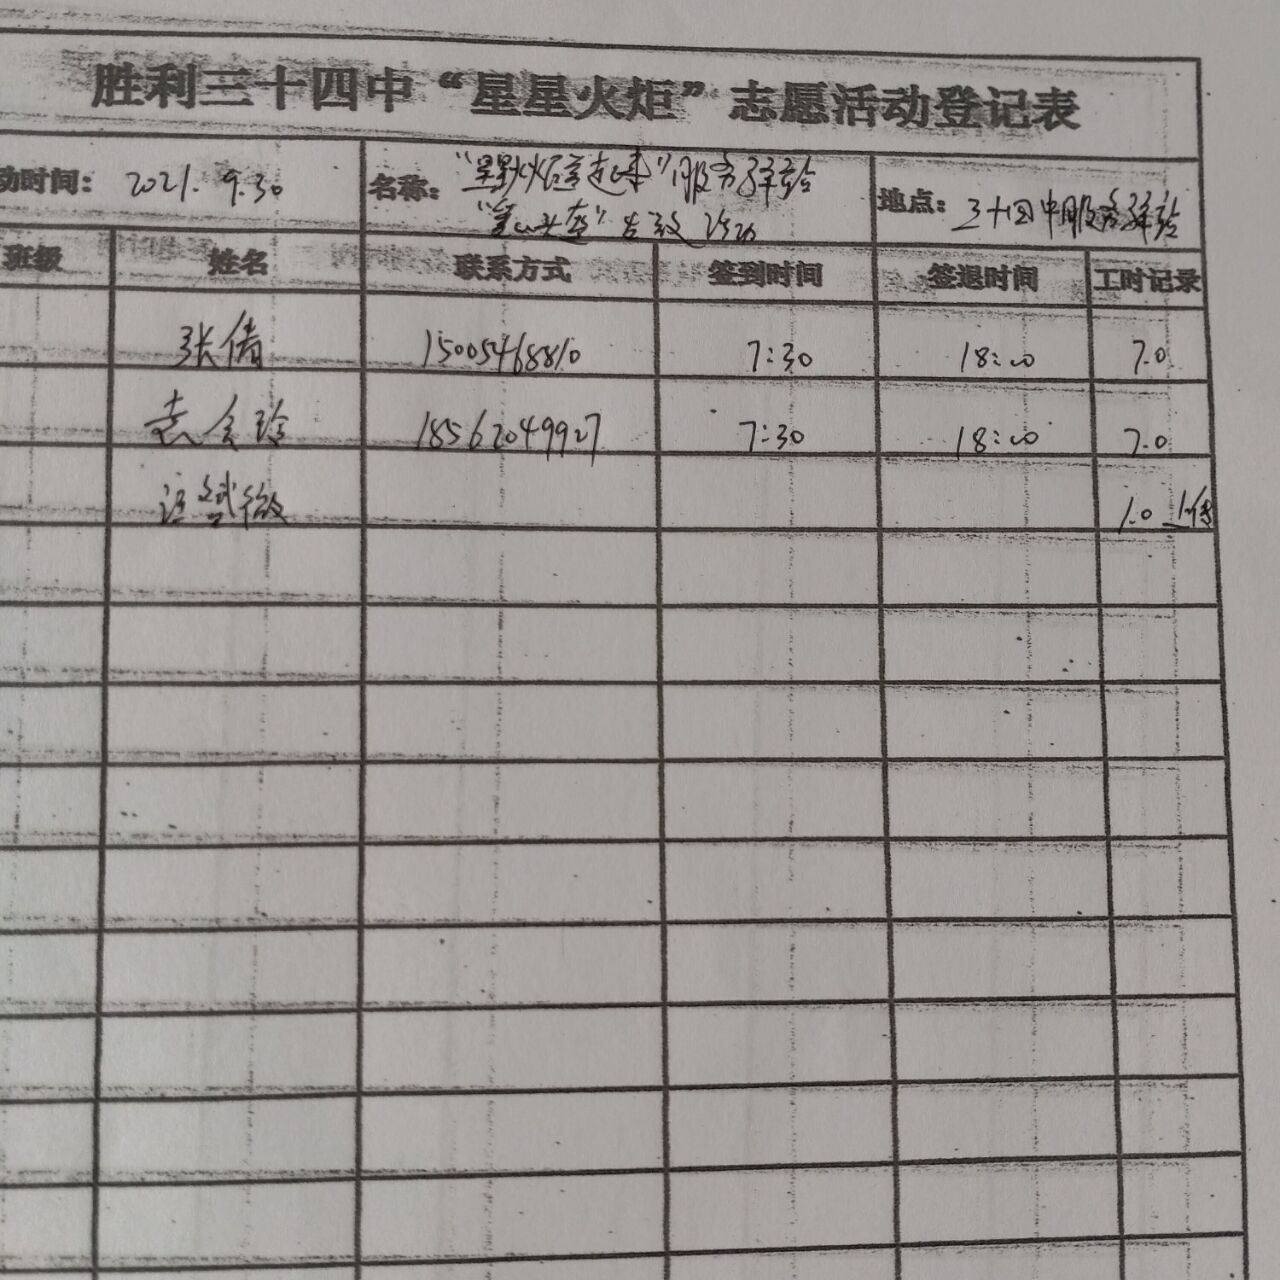 胜利三十四中“星星火炬”志愿活动登记表
动时间： 2021. 9.30 名称： 服务驿站 地点： 三十四中服务驿站
活动
班级 姓名 联系方式 签到时间 签退时间 工时记录
张倩 15005468810 7:30 18:00 7.0
袁会玲 18562049927 7:30 18:00 7.0
1.0 上传